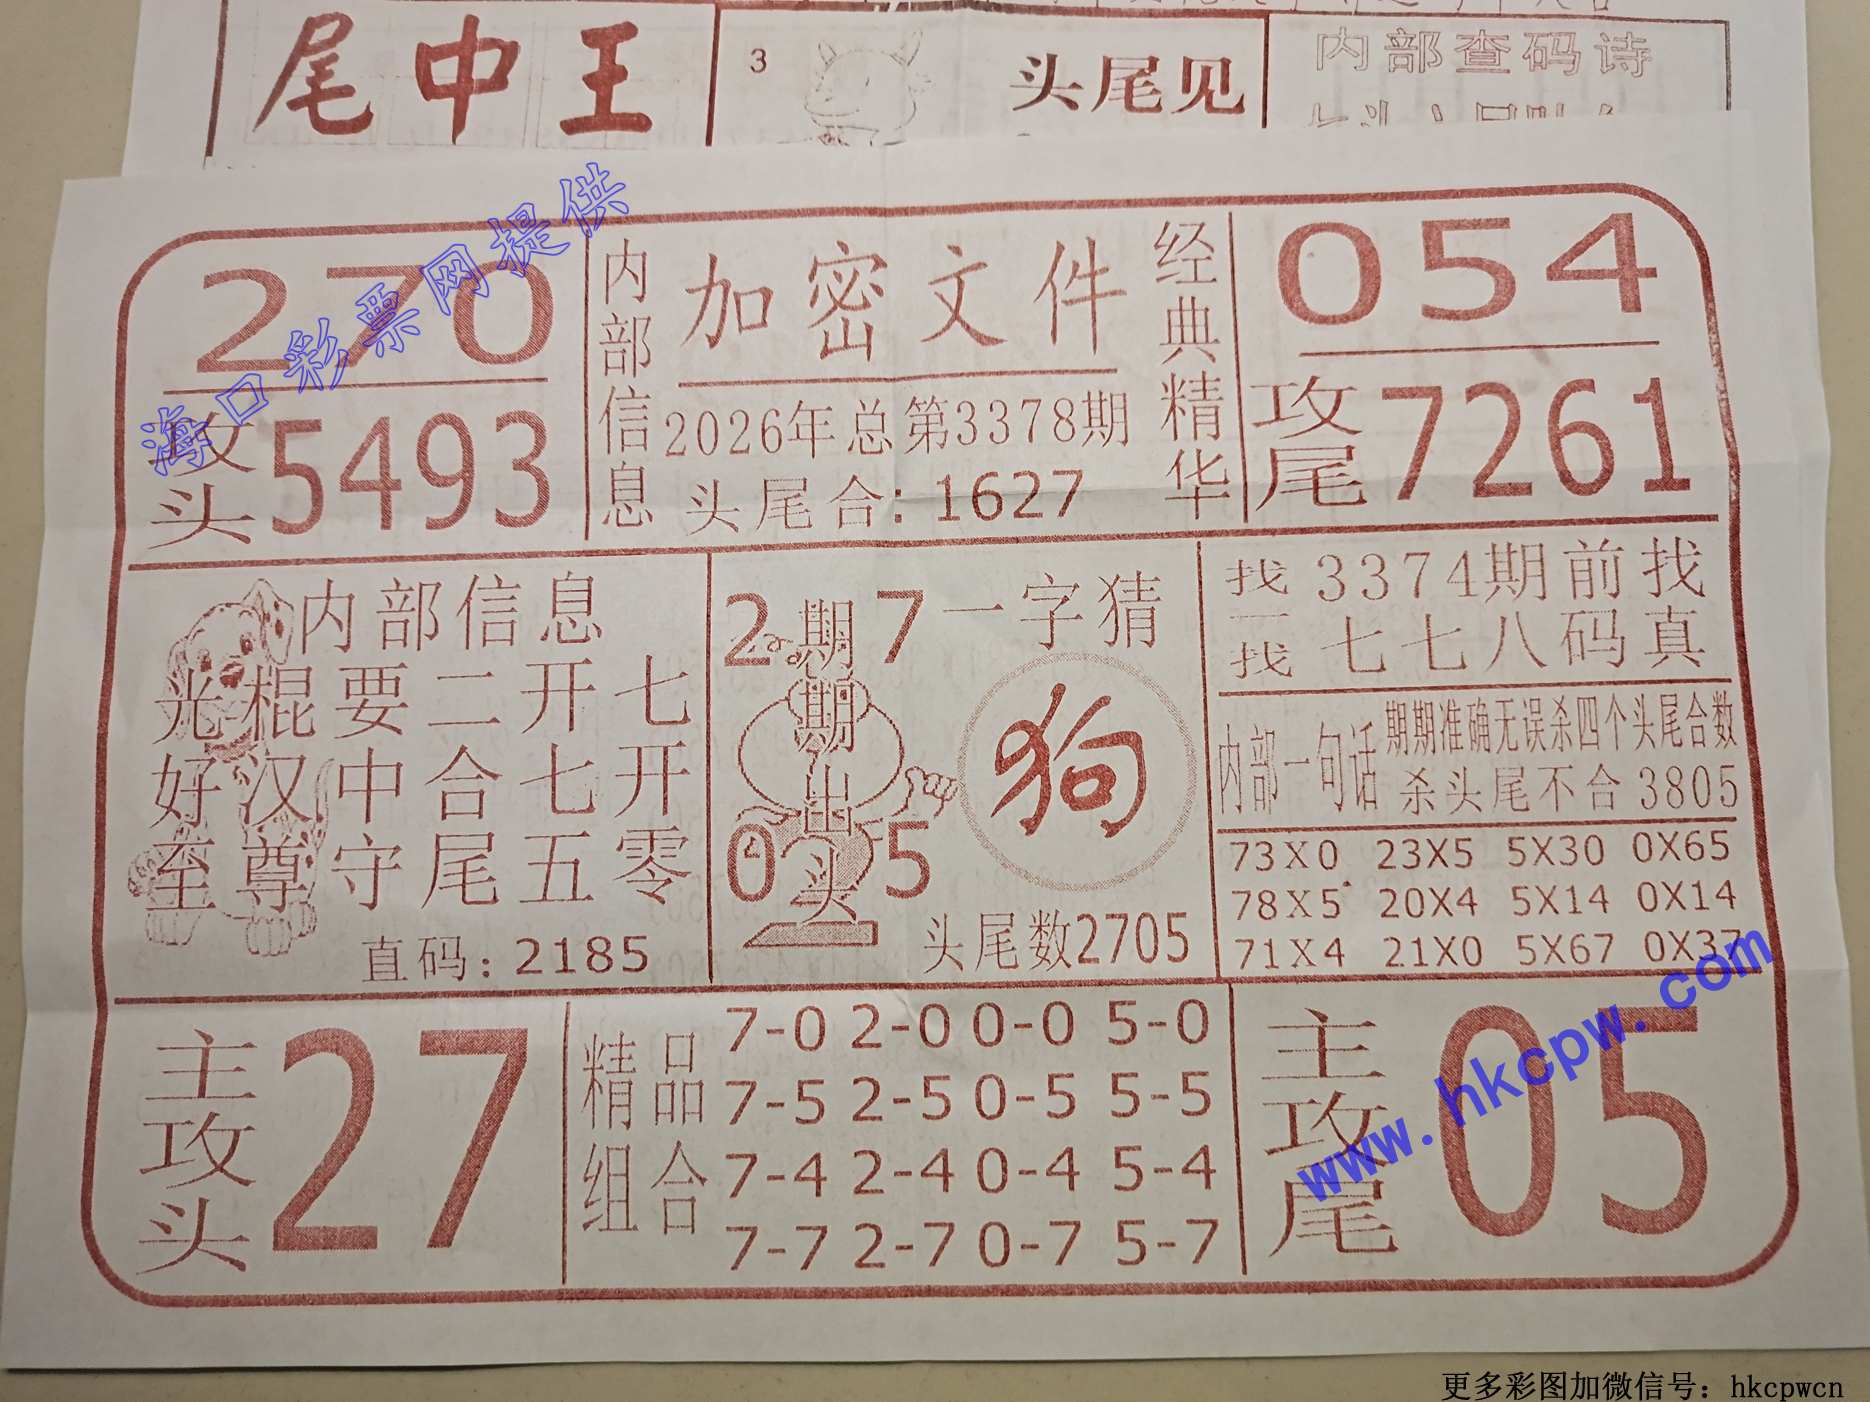 尾中王
3
头尾见
内部查码诗
270
攻头
5493
内部信息
加密文件
2026年总第3378期
头尾合:1627
经典精华
054
攻尾
7261
内部信息
光棍要二开七
好汉中合七开
至尊守尾五零
直码:2185
2 7
期期出头
0 5
一字猜
狗
头尾数2705
找一找
3374期前找
七七八码真
内部一句话
期期准确无误杀四个头尾合数
杀头尾不合3805
73X0 23X5 5X30 0X65
78X5 20X4 5X14 0X14
71X4 21X0 5X67 0X37
主攻头
27
精品组合
7-0 2-0 0-0 5-0
7-5 2-5 0-5 5-5
7-4 2-4 0-4 5-4
7-7 2-7 0-7 5-7
主攻尾
05
海口彩票网提供
www.hkcpw.com
更多彩图加微信号：hkcpwcn